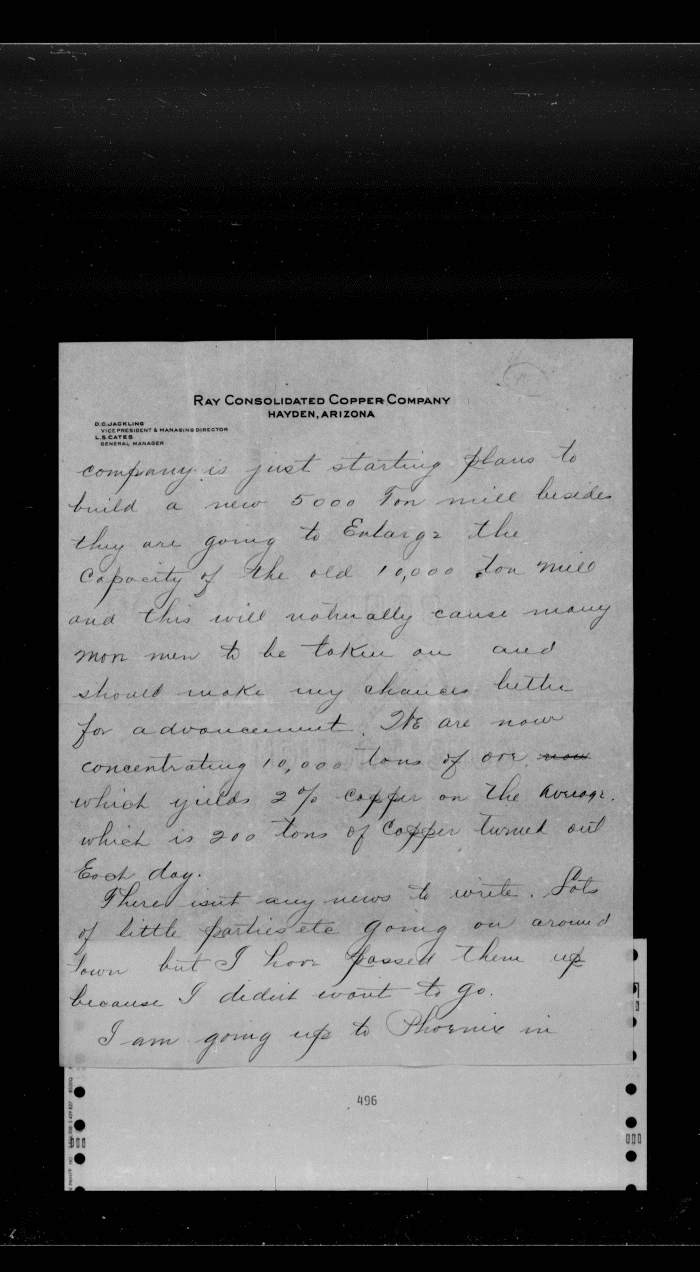 RAY CONSOLIDATED COPPER COMPANY
HAYDEN, ARIZONA
D.C. JACKLING
VICE PRESIDENT & MANAGING DIRECTOR
L.S. CATES
GENERAL MANAGER
company is just starting plans to
build a new 5000 Ton mill besides
they are going to Enlarge the
Capacity of the old 10,000 ton mill
and this will naturally cause many
more men to be taken on and
should make my chances better
for advancement. We are now
concentrating 10,000 tons of ore, now
which yields 2% copper on the average.
which is 200 tons of Copper turned out
Each day.
There isnt any news to write. Lots
of little parties etc going on around
town but I have passed them up
because I didnt want to go.
I am going up to Phoenix in
496